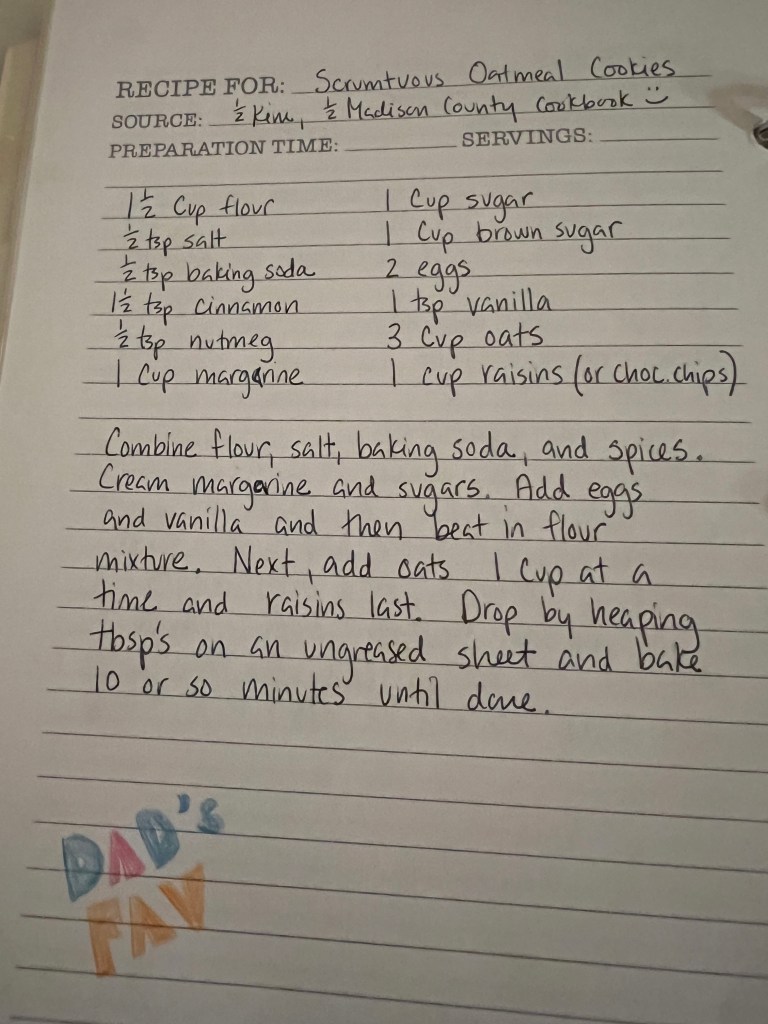 RECIPE FOR: Scrumtuous Oatmeal Cookies
SOURCE: ½ Kim, ½ Madison County Cookbook
PREPARATION TIME: SERVINGS:
1½ Cup flour 1 Cup sugar
½ tsp salt 1 Cup brown sugar
½ tsp baking soda 2 eggs
1½ tsp cinnamon 1 tsp vanilla
½ tsp nutmeg 3 Cup oats
1 Cup margarine 1 cup raisins (or choc. chips)
Combine flour, salt, baking soda, and spices.
Cream margarine and sugars. Add eggs
and vanilla and then beat in flour
mixture. Next, add oats 1 Cup at a
time and raisins last. Drop by heaping
tbsp's on an ungreased sheet and bake
10 or so minutes until done.
DAD'S
FAV